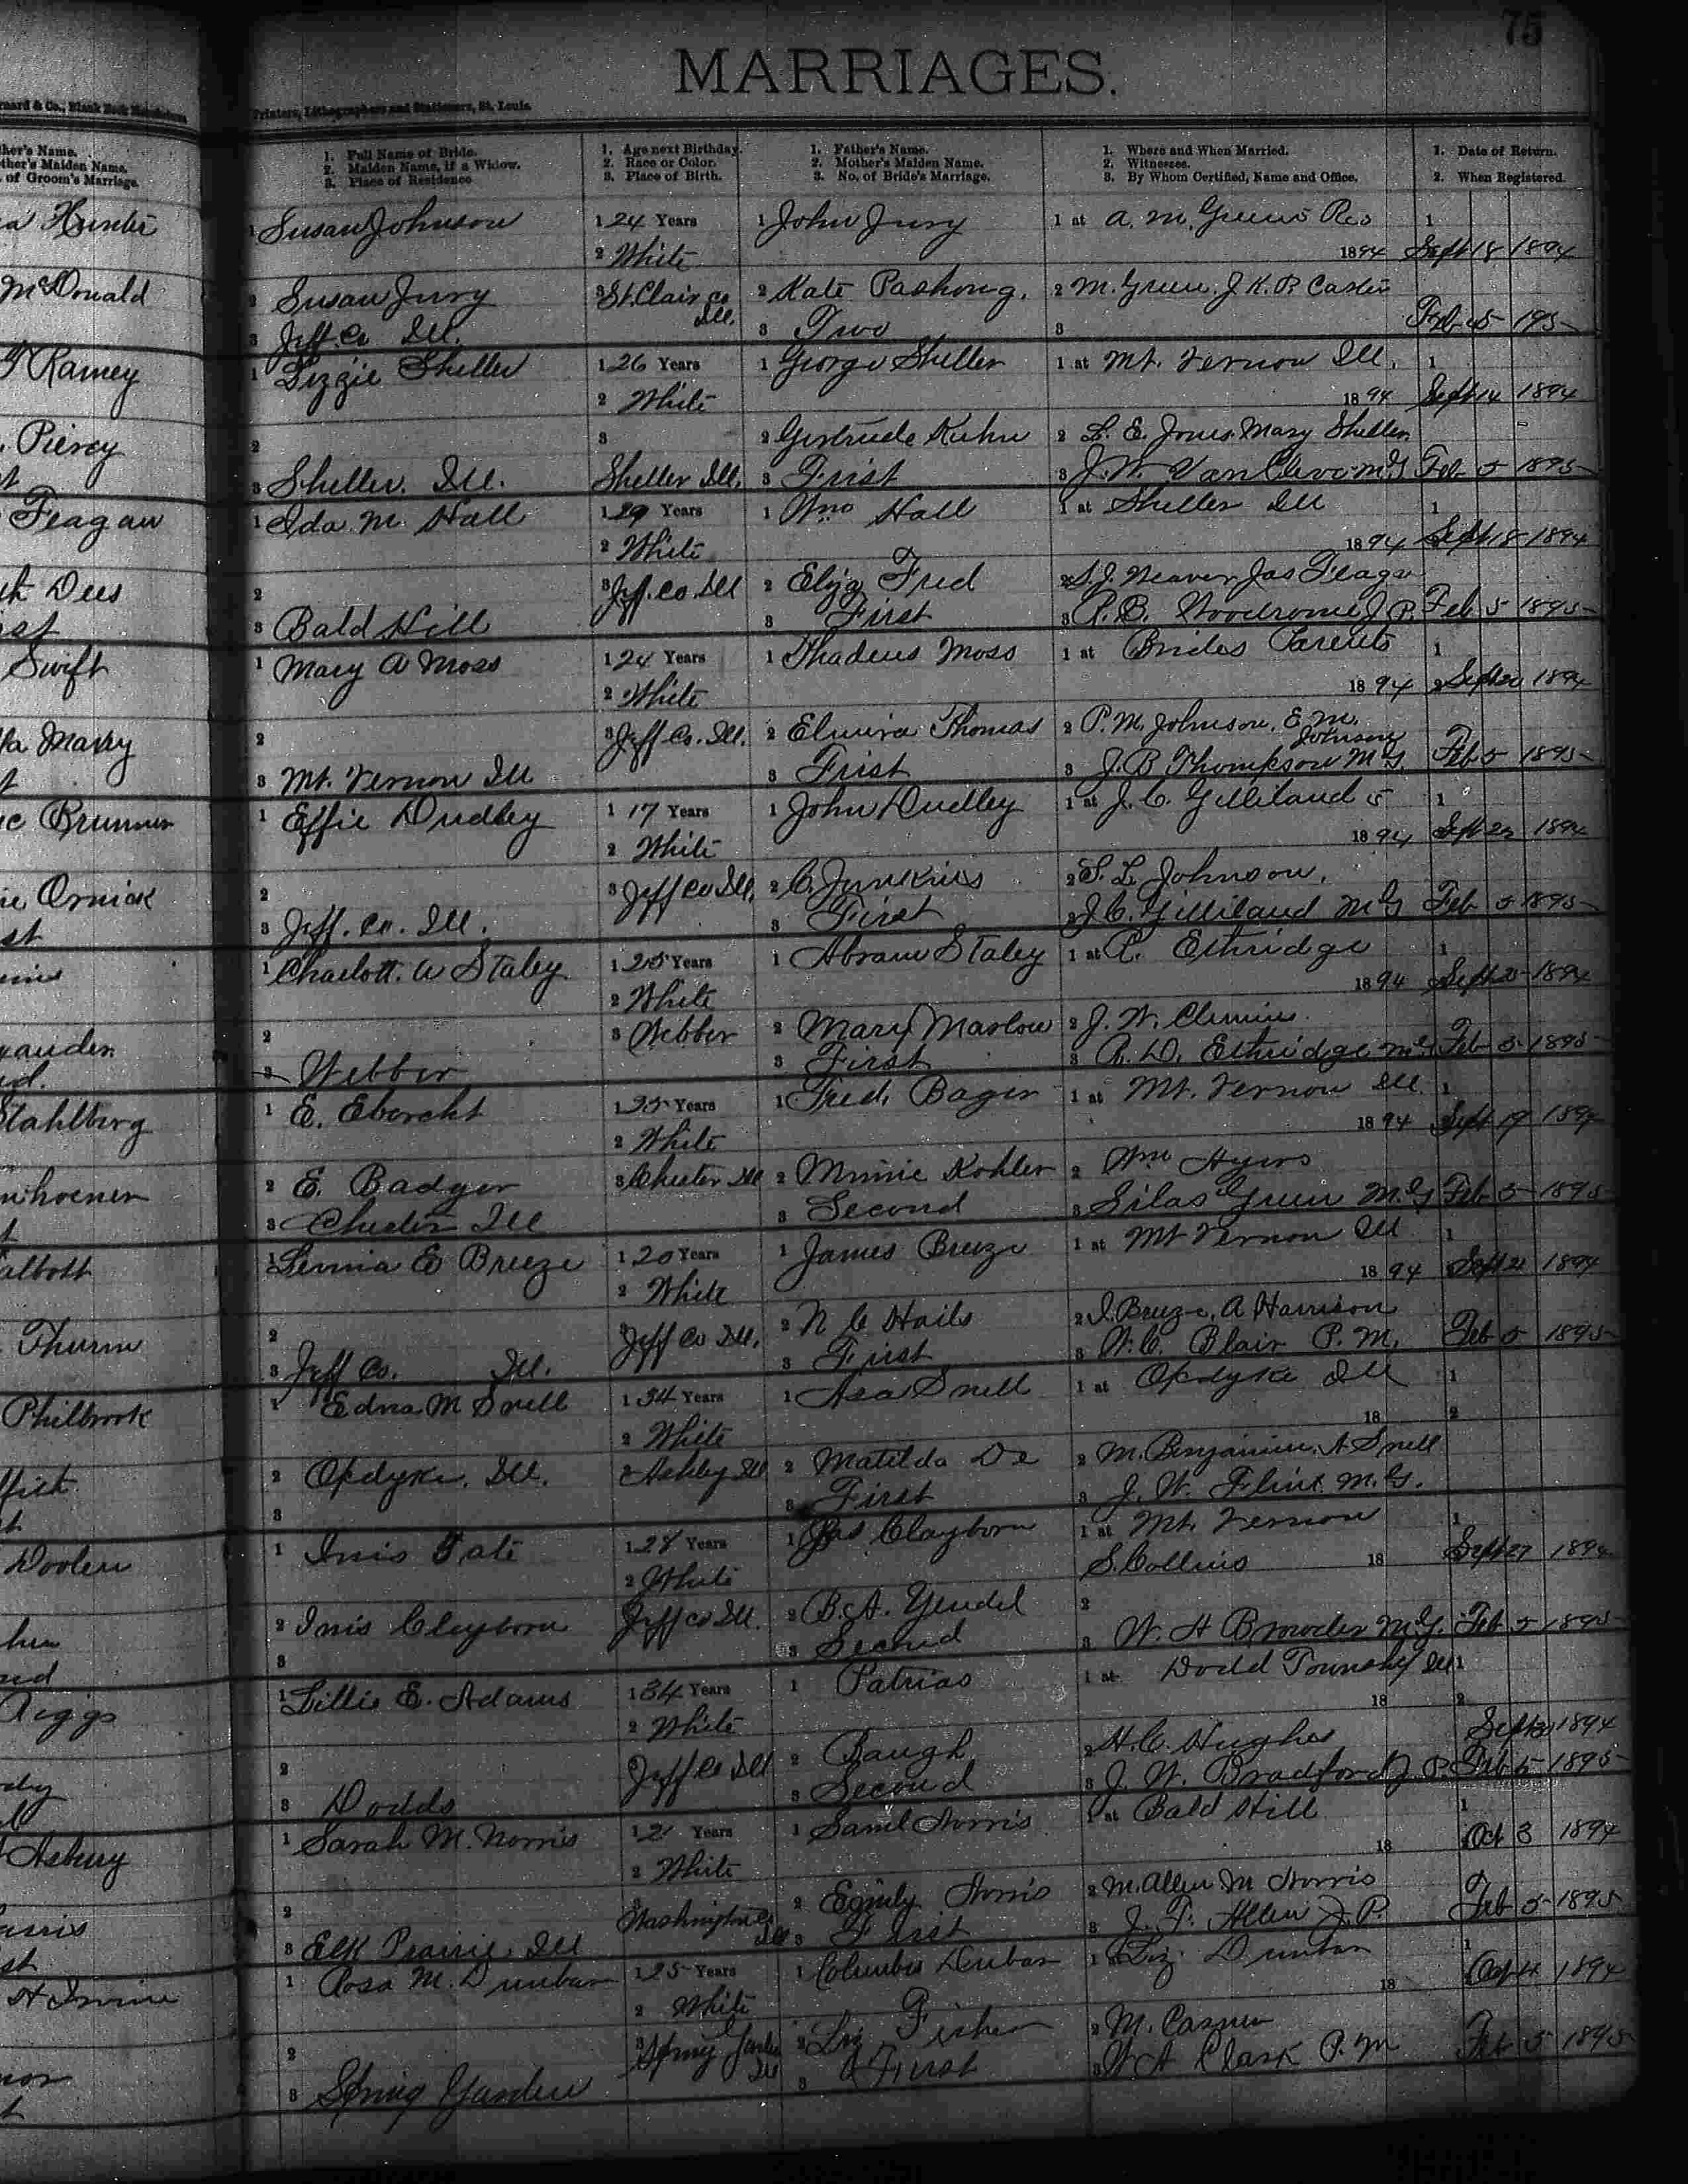 75
MARRIAGES.
Printers, Lithographers and Stationers, St. Louis.
her's Name.
ther's Maiden Name.
of Groom's Marriage.
1. Full Name of Bride.
2. Maiden Name, if a Widow.
3. Place of Residence
1. Age next Birthday.
2. Race or Color.
3. Place of Birth.
1. Father's Name.
2. Mother's Maiden Name.
3. No. of Bride's Marriage.
1. Where and When Married.
2. Witnesses.
3. By Whom Certified, Name and Office.
1. Date of Return.
2. When Registered.
1 Susan Johnson 1 24 Years 1 John Jury 1 at A. M. Greens Res 1
2 White 1894 Sept 18 1894
McDonald 2 Susan Jury 3 St. Clair Co Ill. 2 Kate Pashong. 2 M. Green. J. K. P.
3 Jeff. Co Ill. 3 Two 3 Feb 5
Ramey 1 Lizzie Sheller 1 26 Years 1 George Sheller 1 at Mt. Vernon Ill. 1
2 White 1894 Sept 14 1894
Piercy 2 3 2 Gertrude Kuhn 2 L. E. Jones. Mary Sheller
3 Sheller. Ill. Sheller Ill. 3 First 3 J. W. VanCleve M.G Feb 5 1895
Feagan 1 Ida M. Hall 1 29 Years 1 Wm Hall 1 at Sheller Ill 1
2 White 1894 Sept 18 1894
Dees 2 3 Jeff. Co. Ill 2 Eliza Fred 2 S. J. Weaver Jas Feagan
3 Bald Hill 3 First 3 R. B. Woodrome J. P. Feb 5 1895
Swift 1 Mary A Moss 1 24 Years 1 Thadeus Moss 1 at Brides Parents 1
2 White 1894 2 Sept 20 1894
2 3 Jeff Co. Ill. 2 Elmira Thomas 2 P. M. Johnson, E M. Johnson
3 Mt. Vernon Ill 3 First 3 J. B Thompson M G. Feb 5 1895
Brunner 1 Effie Dudley 1 17 Years 1 John Dudley 1 at J. C. Gilliland s 1
2 White 1894 Sept 22 1894
2 3 Jeff Co Ill. 2 C. Junkins 2 S. L. Johnson.
3 Jeff. Co. Ill. 3 First 3 J. C. Gilliland M G Feb 5 1895
1 Charlott. A Staley 1 25 Years 1 Abram Staley 1 at R. Ethridge 1
2 White 1894 Sept 20 1894
2 3 Webber 2 Mary Marlow 2 J. W.
3 Webber 3 First 3 R. D. Ethridge M G Feb 5 1895
Stahlberg 1 E. Ebercht 1 35 Years 1 Fred. Bager 1 at Mt. Vernon Ill. 1
2 White 1894 Sept 19 1894
2 E. Badger 3 Chester Ill 2 Minnie Kohler 2 Wm Ayers
3 Chester Ill 3 Second 3 Silas Green M.G Feb 5 1895
1 E Breeze 1 20 Years 1 James Breeze 1 at Mt Vernon Ill 1
2 White 1894 Sept 21 1894
Thurm 2 Jeff Co Ill. 2 N C Hails 2 I. Breeze, A Harrison
3 Jeff Co. Ill. 3 First 3 W. C. Blair P. M. Feb 5 1895
Philbrook 1 Edna M Snell 1 34 Years 1 Asa Snell 1 at Opdyke Ill 1
2 White 18 2
2 Opdyke. Ill. 3 Ashley Ill 2 Matilda De 2 M. Benjamin. A Snell
3 3 First 3 J. W. Flint M. G.
Doolen 1 Inis Tate 1 28 Years 1 Jas Clayborn 1 at Mt. Vernon 1
2 White S. Collins 18 Sept 27 1894
2 Inis Clayborn Jeff Co Ill. 2 B. A. Yendel 2
3 3 Second 3 W. H Browder M. G. Feb 5 1895
Riggs 1 Lillie E. Adams 1 34 Years 1 Patrias 1 at Dodd Township Ill 1
2 White 18 2
2 Jeff Co Ill 2 Baugh 2 H. C. Hughes Sept 30 1894
3 Dodds 3 Second 3 J. W. Bradford J. P. Feb 5 1895
Asbury 1 Sarah M. Norris 1 21 Years 1 Saml Norris 1 at Bald Hill 1
2 White 18 Oct 3 1894
2 3 Washington Co Ill 2 Emily Norris 2 M. Allen M Norris
3 Elk Prairie. Ill 3 First 3 J. T. Allen J. P. Feb 5 1895
1 Rosa M. Dunbar 1 25 Years 1 Columbus Dunbar 1 at Liz Dunbar 1
2 White 18 Oct 4 1894
2 3 Spring Garden Ill 2 Liz Fisher 2 M. Casner
3 Spring Garden 3 First 3 W. A Clark P. M Feb 5 1895